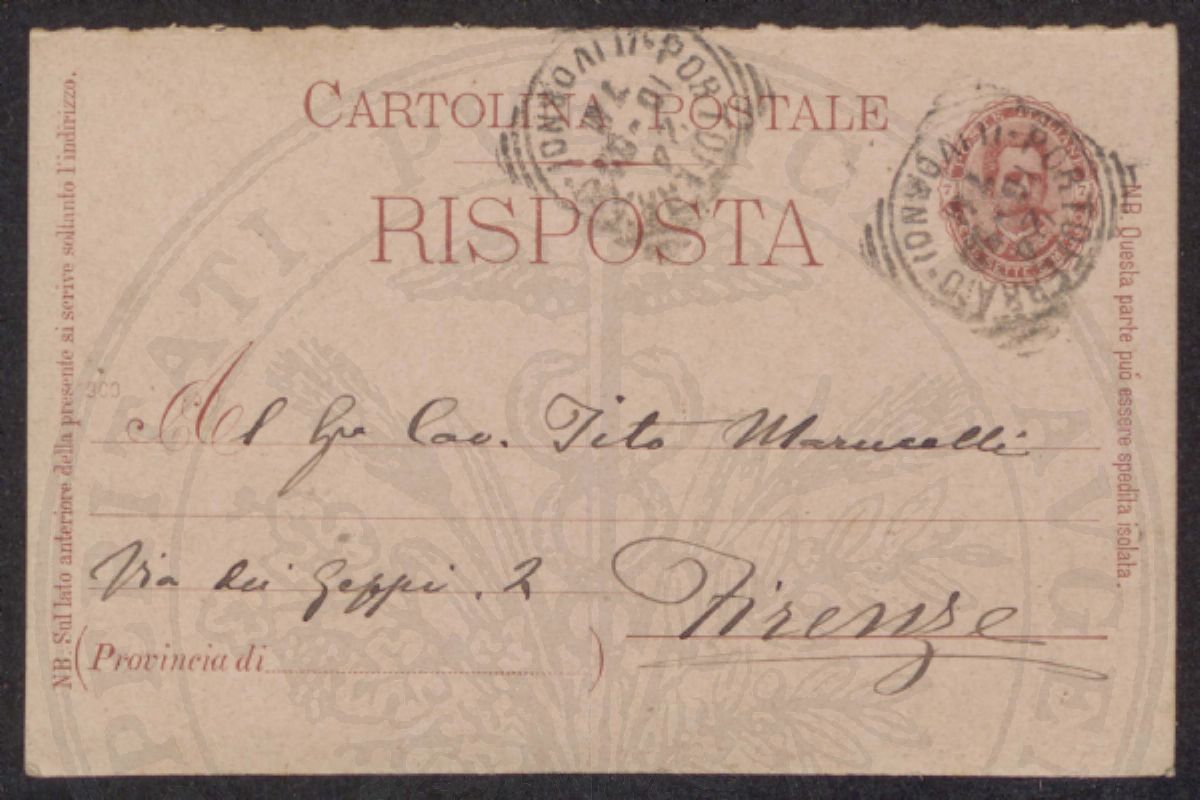 CARTOLINA POSTALE
RISPOSTA
PORTOFERRAIO (LIVORNO)
PORTOFERRAIO (LIVORNO)
Al Cav. Tito Marucelli
Via dei Geppi. 2
Firenze
(Provincia di )
NB. Sul lato anteriore della presente si scrive soltanto l'indirizzo.
NB. Questa parte può essere spedita isolata.
PIETATI
AVGE